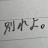 別れよ。